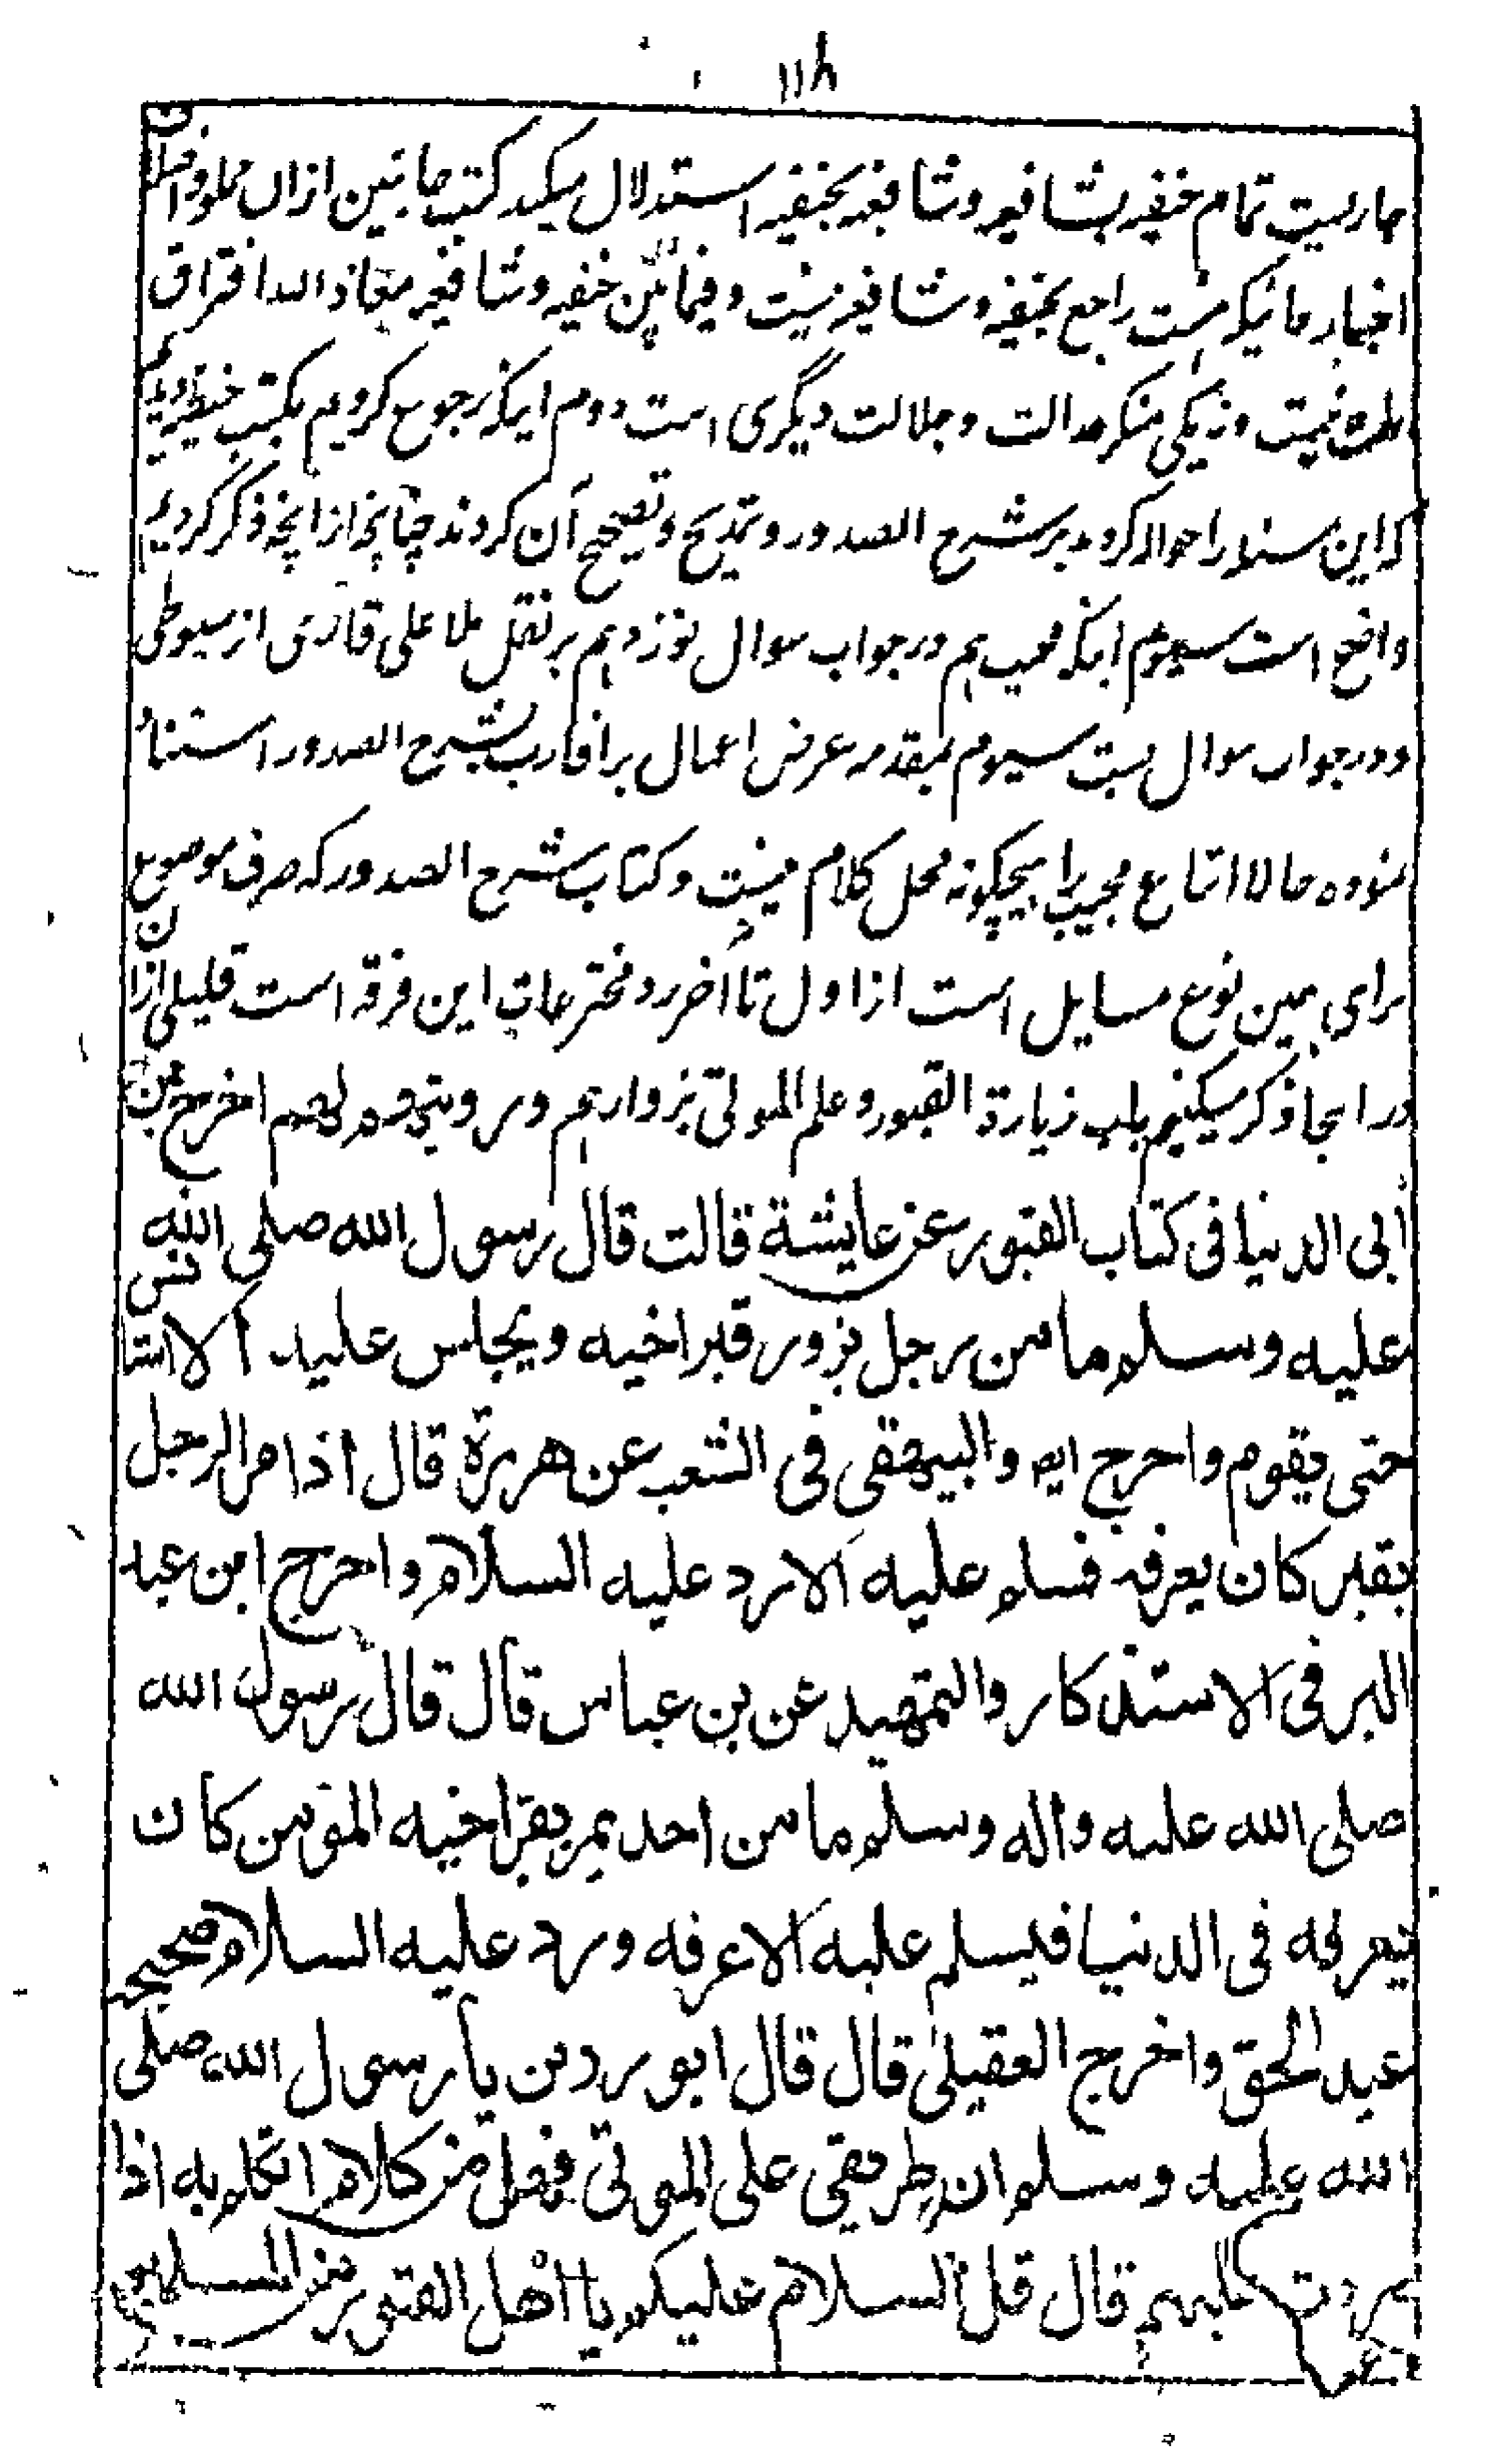 ۱۱۴
جاریست تمام حنفیه بشافیعه وشافعیه بحنفیه استدلال میکند کتب جانبین ازان مملو واختلاف
اخبار مانیکه هست راجع بحنفیه وشافیعه نیست وفیمابین حنفیه وشافعیه معاذ الله افتراق
نیست ونه یکی منکر عدالت وجلالت دیگری است دوم اینکه رجوع کردیم بکتب حنفیه دیدیم
که این مسئله را حواله کردند بر شرح الصدور ومدیح وتصحیح آن کردند چنانچه ازانچه ذکر کردیم
واضح است سیوم اینکه مجیب هم در جواب سوال نوزدهم بر نقل ملا علی قاری از سیوطی
ودر جواب سوال بست سیوم بمقدمه عرض اعمال بر اقارب بشرح الصدور استناد
نموده حالا اتباع مجیب را هیچگونه محل کلام نیست وکتاب شرح الصدور که صرف موضوع
برای همین نوع مسایل است از اول تا اخر رد مخترعات این فرقه است قلیلی ازان
در اینجا ذکر میکنیم باب زیارة القبور وعلم الموتی بزوارهم ورویتهم لهم اخرج بن
ابی الدنیا فی کتاب القبور عن عایشة قالت قال رسول الله صلی الله
علیه وسلم ما من رجل یزور قبر اخیه ویجلس علیه الا استانس
حتی یقوم واخرج ایم والبیهقی فی الشعب عن هریرة قال اذا مر الرجل
بقبر کان یعرفه فسلم علیه الا رد علیه السلام واخرج ابن عبد
البر فی الاستذکار والتمهید عن بن عباس قال قال رسول الله
صلی الله علیه واله وسلم ما من احد یمر بقبر اخیه المؤمن کان
یعرفه فی الدنیا فیسلم علیه الا عرفه ورد علیه السلام صححه
عبد الحق واخرج العقیلی قال قال ابو رزین یا رسول الله صلی
الله علیه وسلم ان طریقی علی الموتی فهل من کلام اتکلم به اذا
مررت علیهم قال قل السلام علیکم یا اهل القبور من المسلمین